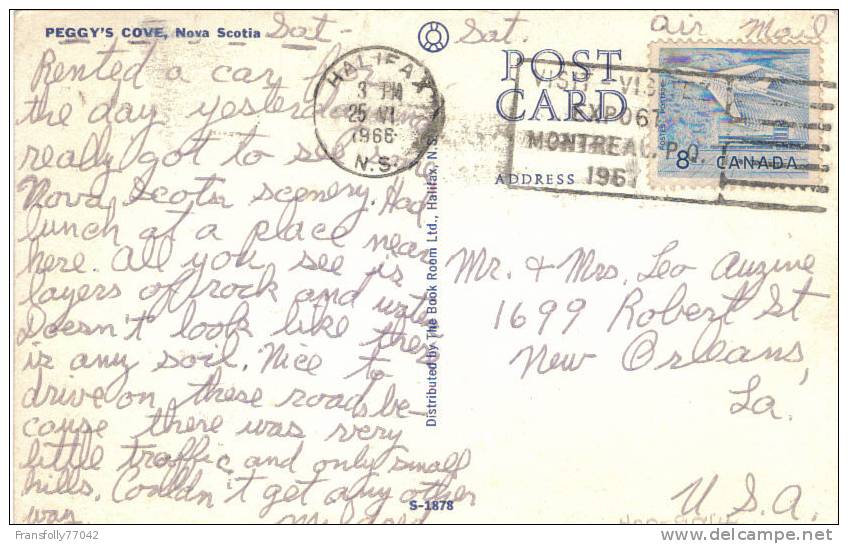 PEGGY'S COVE, Nova Scotia
Sat-
Rented a car for
the day yesterday
really got to see the
Nova Scotia scenery. Had
lunch at a place near
here. All you see is
layers of rock and water
Doesn't look like there
is any soil. Nice to
drive on these roads be-
cause there was very
little traffic and only small
hills. Couldn't get any other
way.
Mildred
HALIFAX
3 PM
25 VI
1966
N.S.
Distributed by The Book Room Ltd., Halifax, N.S.
S-1878
Sat.
Air Mail
POST
CARD
ADDRESS
VISIT
EXPO 67
MONTREAL, P.Q.
1967
POSTES POSTAGE
8 CANADA
Mr. + Mrs. Leo Auzine
1699 Robert St
New Orleans,
La.
U.S.A.
Fransfolly77042
delcampe.net